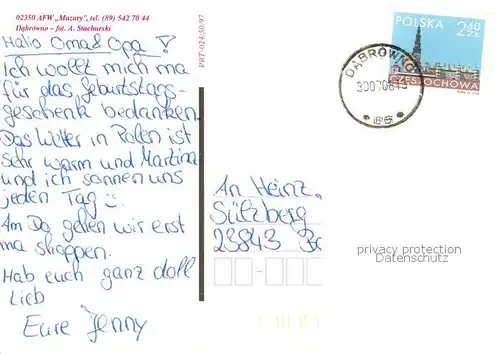 02350 AFW „Mazury", tel. (89) 542 70 44
Dąbrówno – fot. A. Stachurski
PRT-024/50/97
Hallo Oma & Opa!
Ich wollt mich ma
für das Geburtstags-
geschenk bedanken.
Das Wetter in Polen ist
sehr warm und Martina
und ich sonnen uns
jeden Tag
Am Do gehen wir erst
ma shoppen.
Hab euch ganz doll
lieb
Eure Jenny
POLSKA 2,40 ZŁ
CZĘSTOCHOWA
DĄBRÓWNO
An Heinz,
Sülzberg
23843 Ba
privacy protection
Datenschutz